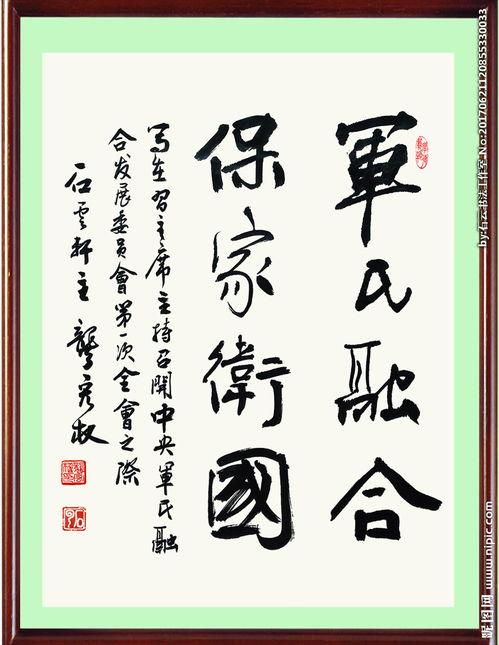 軍民融合
保家衛國
写在習主席主持召開中央軍民融
合发展委员會第一次全會之際
石雲軒主 龔
by:石云书法工作室 No:20170621120855330033
昵图网 www.nipic.com